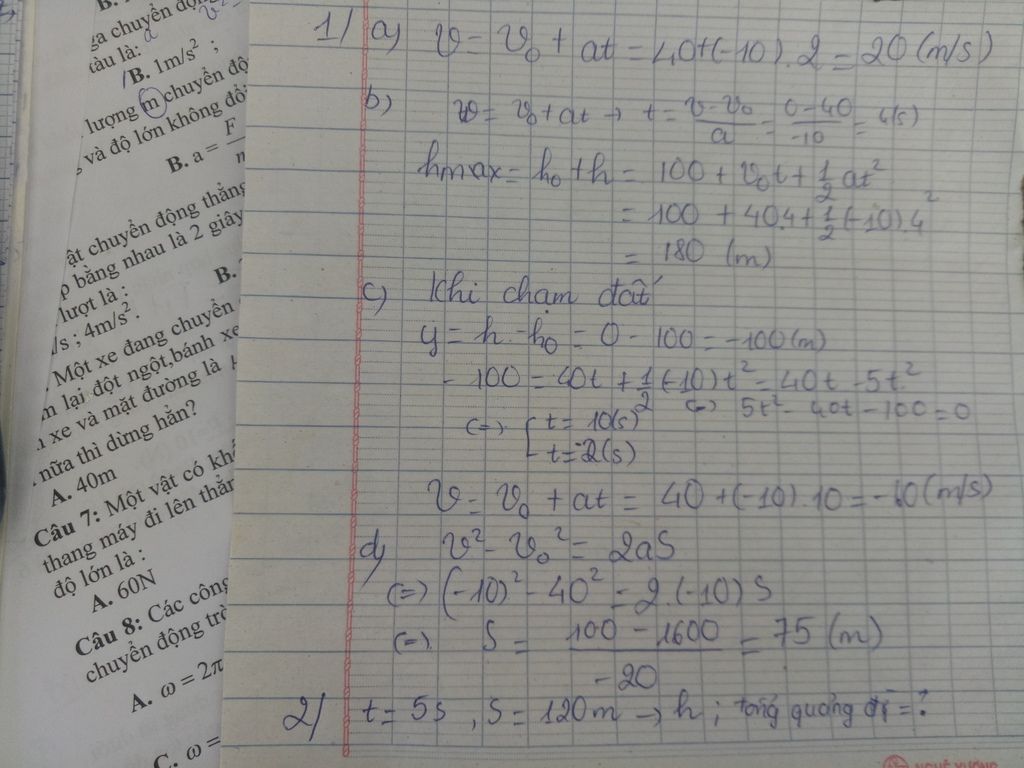 B.
ga chuyển độn
tàu là:
B. 1m/s² ;
lượng m chuyển độ
và độ lớn không đổ
B. a = F
ật chuyển động thẳng
p bằng nhau là 2 giây
B.
lượt là :
/s ; 4m/s² .
Một xe đang chuyển
m lại đột ngột, bánh xe
xe và mặt đường là
nữa thì dừng hẳn?
A. 40m
Câu 7: Một vật có khố
thang máy đi lên thẳn
độ lớn là :
A. 60N
Câu 8: Các công
chuyển động trò
A. ω = 2π
C. ω =
1/ a) v = v₀ + at = 40+(-10).2 = 20 (m/s)
b) v = v₀ + at → t = (v-v₀)/a = (0-40)/-10 = 4(s)
hmax = h₀ + h = 100 + v₀t + 1/2 at²
= 100 + 40.4 + 1/2 (-10).4²
= 180 (m)
c) Khi chạm đất
y = h - h₀ = 0 - 100 = -100 (m)
- 100 = 40t + 1/2 (-10)t² = 40t - 5t²
(=) 5t² - 40t - 100 = 0
(=) [ t = 10(s)
t = -2(s)
v = v₀ + at = 40 + (-10).10 = -60 (m/s)
d) v² - v₀² = 2aS
(=) (-10)² - 40² = 2.(-10) S
(=) S = (100 - 1600)/-20 = 75 (m)
2/ t = 5s , S = 120m → h ; tổng quãng đg = ?